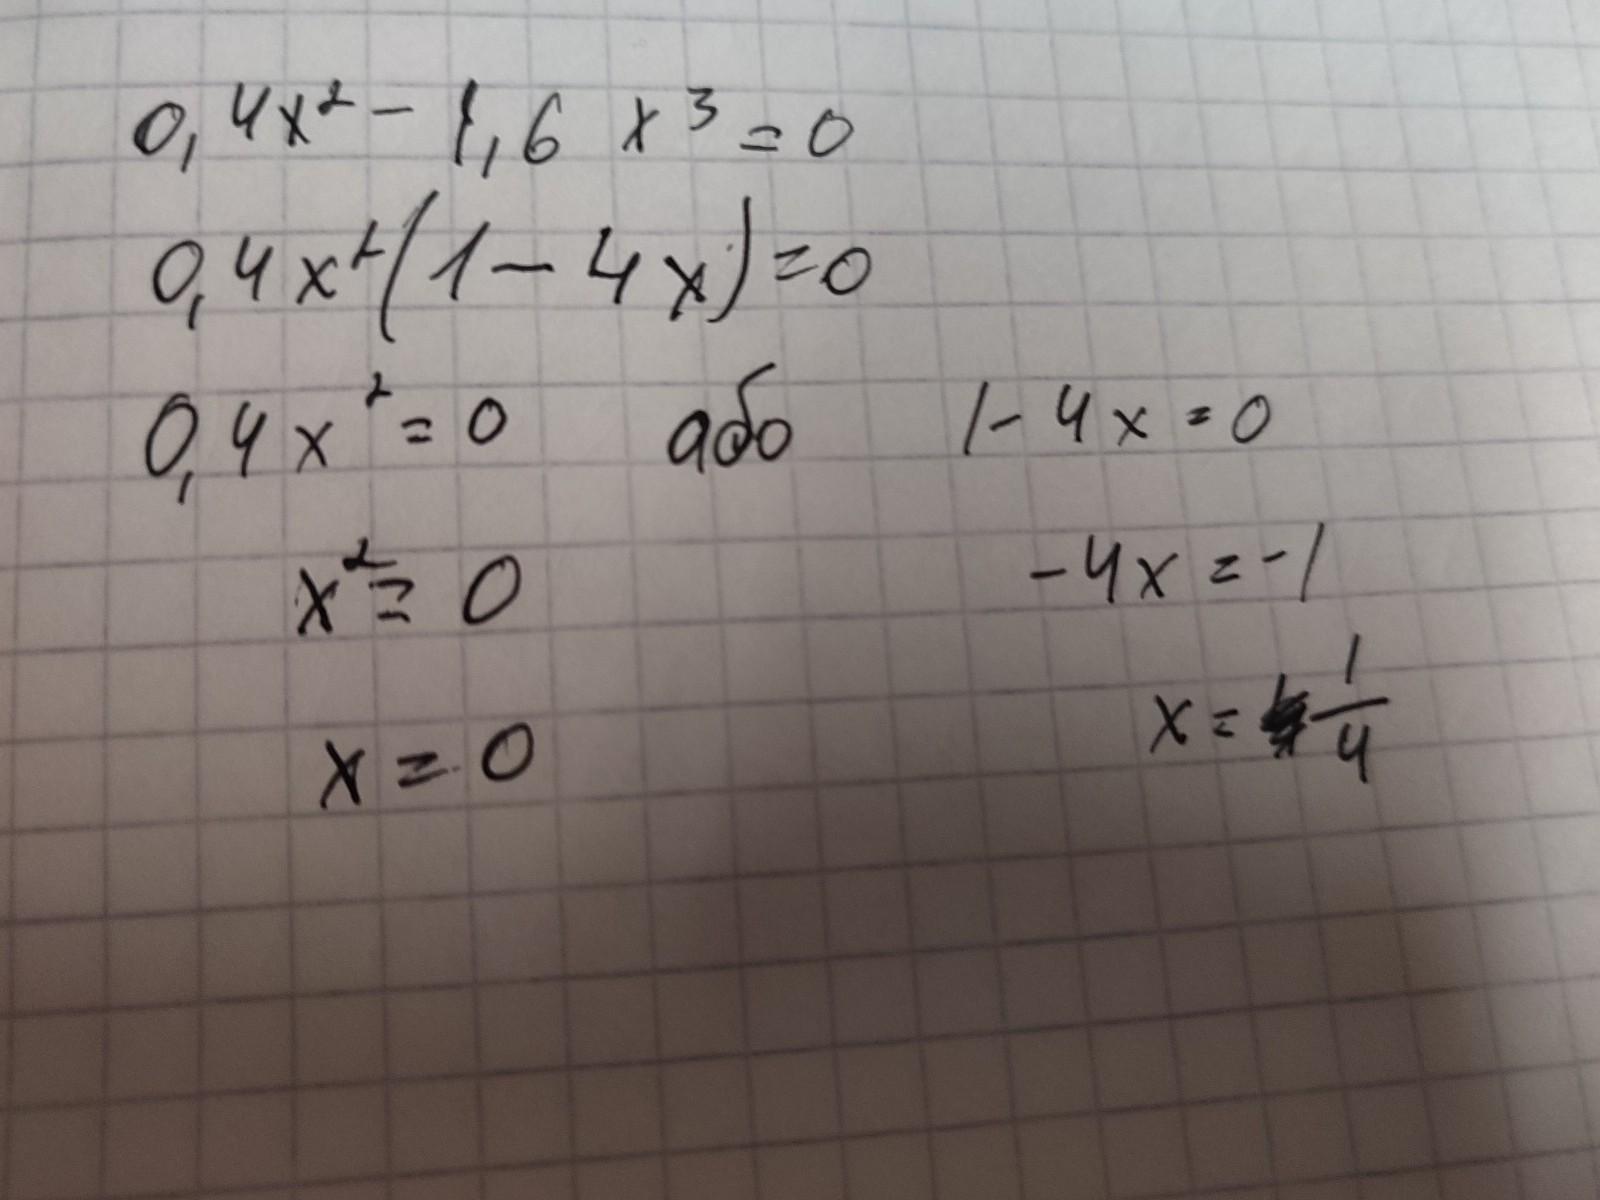 0,4x² - 1,6 x³ = 0
0,4x²(1 - 4x) = 0
0,4x² = 0 або 1 - 4x = 0
x² = 0 -4x = -1
x = 0 x = 1/4